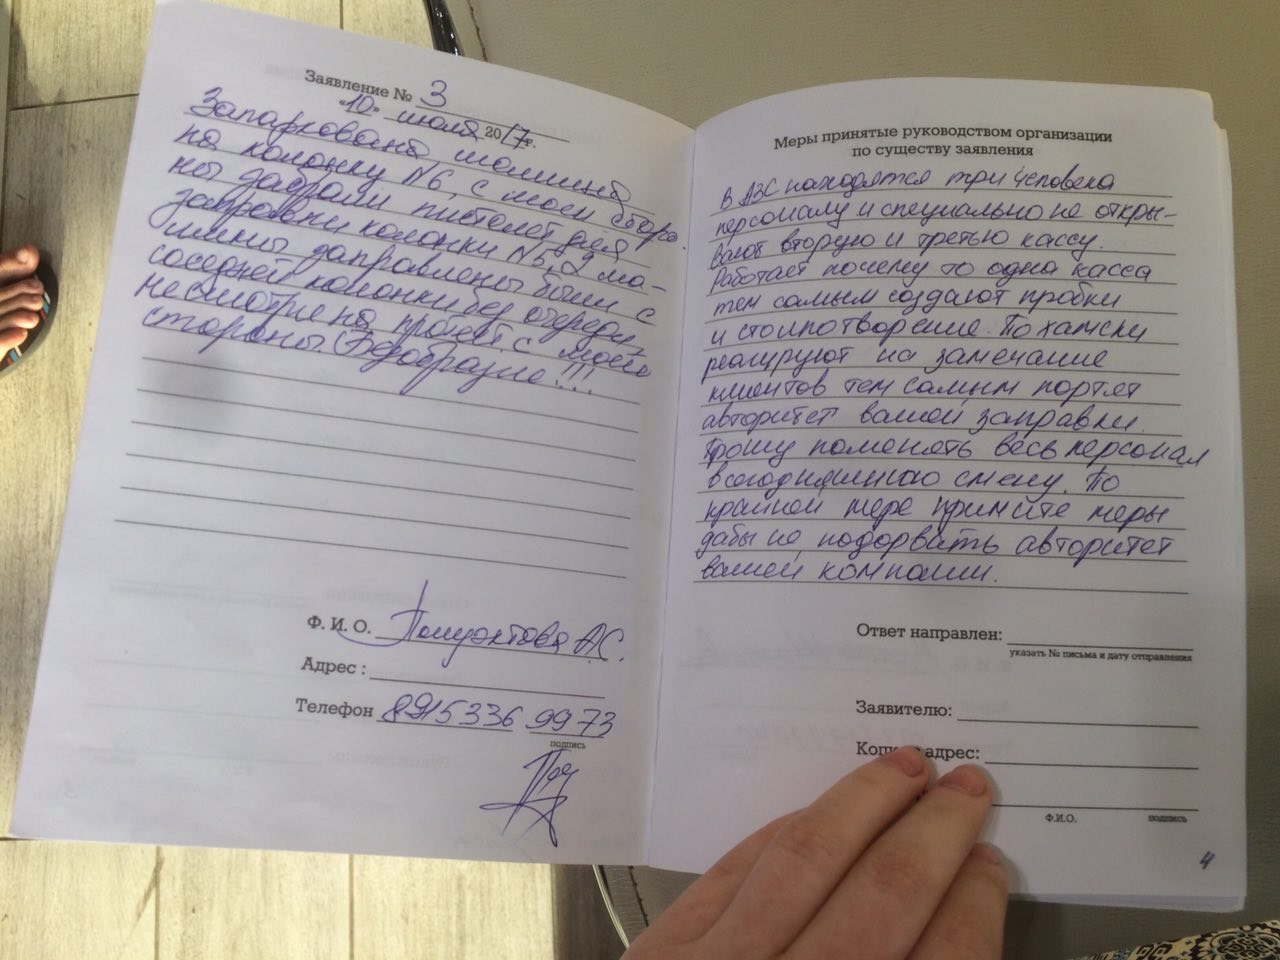 Заявление № 3
«10» июля 2017г.
Запаркована машина
на колонку №6, с моей сторо-
ны забрали пистолет для
заправки колонки №5, 2 ма-
шины заправлены были с
соседней колонки без очереди,
несмотря на протест с моей
стороны. Безобразие!!!
Ф. И. О. Полуэктова А.С.
Адрес :
Телефон 8915336 9973
подпись
Меры принятые руководством организации
по существу заявления
В АЗС находятся три человека
персоналу и специально не откры-
вают вторую и третью кассу.
Работает почему то одна касса
тем самым создают пробки
и столпотворение. По хамски
реагируют на замечание
клиентов тем самым портят
авторитет вашей заправки.
Прошу поменять весь персонал
в сегодняшнюю смену. По
крайней мере примите меры
дабы не подорвать авторитет
вашей компании.
Ответ направлен:
указать № письма и дату отправления
Заявителю:
адрес:
Ф.И.О. подпись
4